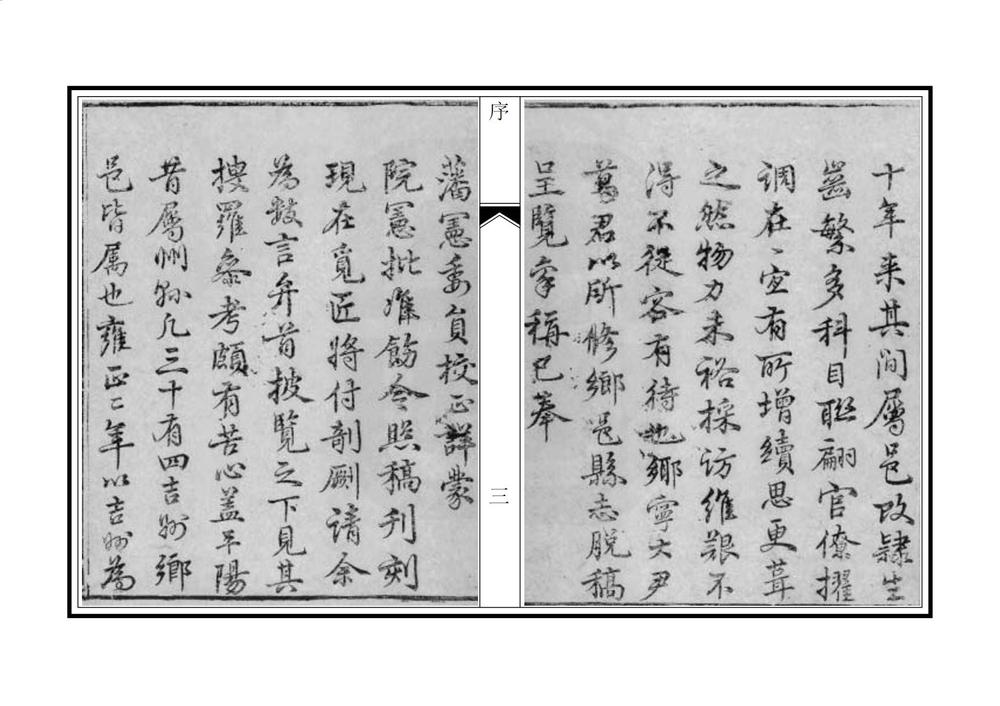 十年来其间屬邑改隸生
齒繁多科目聯翩官僚擢
調在在宜有所增續思更葺
之然物力未裕採访維艱不
淂不從容有待也鄉寧大尹
葛君以所修鄉邑縣志脱稿
呈覽幸稱已奉
序
三
藩憲委員校正詳蒙
院憲批准飭令照稿刋刻
現在覓匠將付剞劂請余
為数言弁首披覽之下見其
搜羅叅考頗有苦心盖平陽
昔屬州縣凡三十有四吉州鄉
邑皆属也雍正二年以吉州為